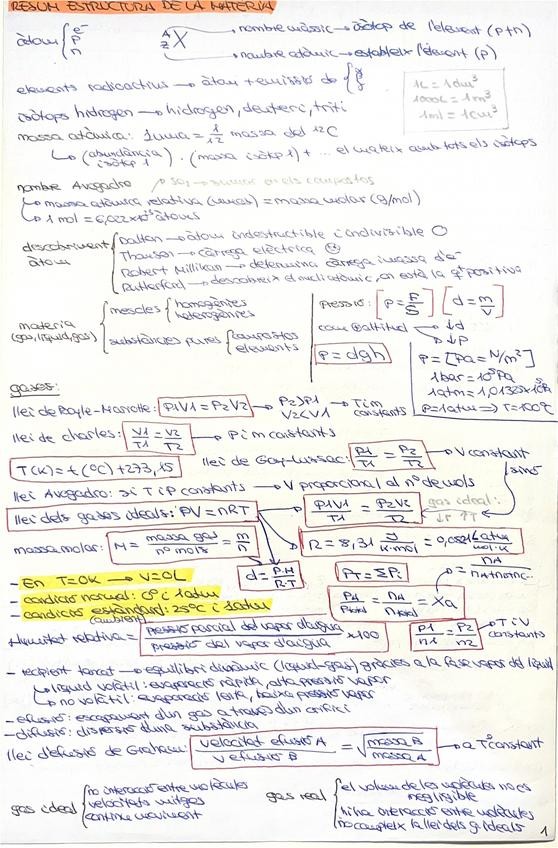 RESUM ESTRUCTURA DE LA MATÈRIA
àtom { e⁻ p n
A Z X → nombre màssic → isòtop de l'element (p+n)
→ nombre atòmic → estableix l'element (p)
elements radioactius → àtom + emissió de { α β γ
1L = 1dm³
1000L = 1m³
1ml = 1cm³
isòtops hidrogen → hidrogen, deuteri, triti
massa atòmica: 1uma = 1/12 massa del ¹²C
↳ (abundància isòtop 1) · (massa isòtop 1) + ... el mateix amb tots els isòtops
nombre Avogadro
↳ massa atòmica relativa (umas) = massa molar (g/mol)
↳ 1 mol = 6,022×10²³ àtoms
descobriment àtom { Dalton → àtom indestructible i indivisible
Thomson → càrrega elèctrica
Robert Millikan → determina càrrega i massa d'e⁻
Rutherford → descobreix el nucli atòmic, on està la q⁺ positiva
matèria (gas, líquid, gas) { mescles { homogènies heterogènies
substàncies pures { compostos elements
pressió: [P = F/S] [d = m/V]
com altitud → ↓d
→ ↓P
P = dgh
P = [Pa = N/m²]
1bar = 10⁵ Pa
1atm = 1,01325×10⁵ Pa
P=1atm → T=100ºC
gases:
llei de Boyle-Mariotte: P1V1 = P2V2 → P2>P1 V2<V1 → T i m constants
llei de Charles: V1/T1 = V2/T2 → P i m constants
T(K) = t(ºC) + 273,15
llei de Gay-Lussac: P1/T1 = P2/T2 → V constant
llei Avogadro: si T i P constants → V proporcional al nº de mols
llei dels gases ideals: PV = nRT
P1V1/T1 = P2V2/T2
gas ideal: ↓P ↑T
massa molar: M = massa gas/nº mols = m/n
R = 8,31 J/K·mol = 0,082 L·atm/mol·K
- En T=0K → V=0L
d = P·M/R·T
PT = ΣPi
- condició normal: 0ºC i 1atm
PA/Ptotal = nA/ntotal = Xa
- condició estàndard: 25ºC i 1atm
(ambient)
Humitat relativa = pressió parcial del vapor d'aigua/pressió del vapor d'aigua ×100
P1/n1 = P2/n2 → T i V constants
- recipient tancat → equilibri dinàmic (líquid-gas) gràcies a la fase vapor del líquid
↳ líquid volàtil: evaporació ràpida, alta pressió vapor
↳ no volàtil: evaporació lenta, baixa pressió vapor
- efusió: escapament d'un gas a través d'un orifici
- difusió: dispersió d'una substància
llei d'efusió de Graham: velocitat efusió A/v efusió B = √massa B/massa A → a T constant
gas ideal { no interacció entre molècules
velocitats mitges
continu moviment
gas real { el volum de les molècules no es negligible
hi ha interacció entre molècules
no compleix la llei dels g. ideals
1